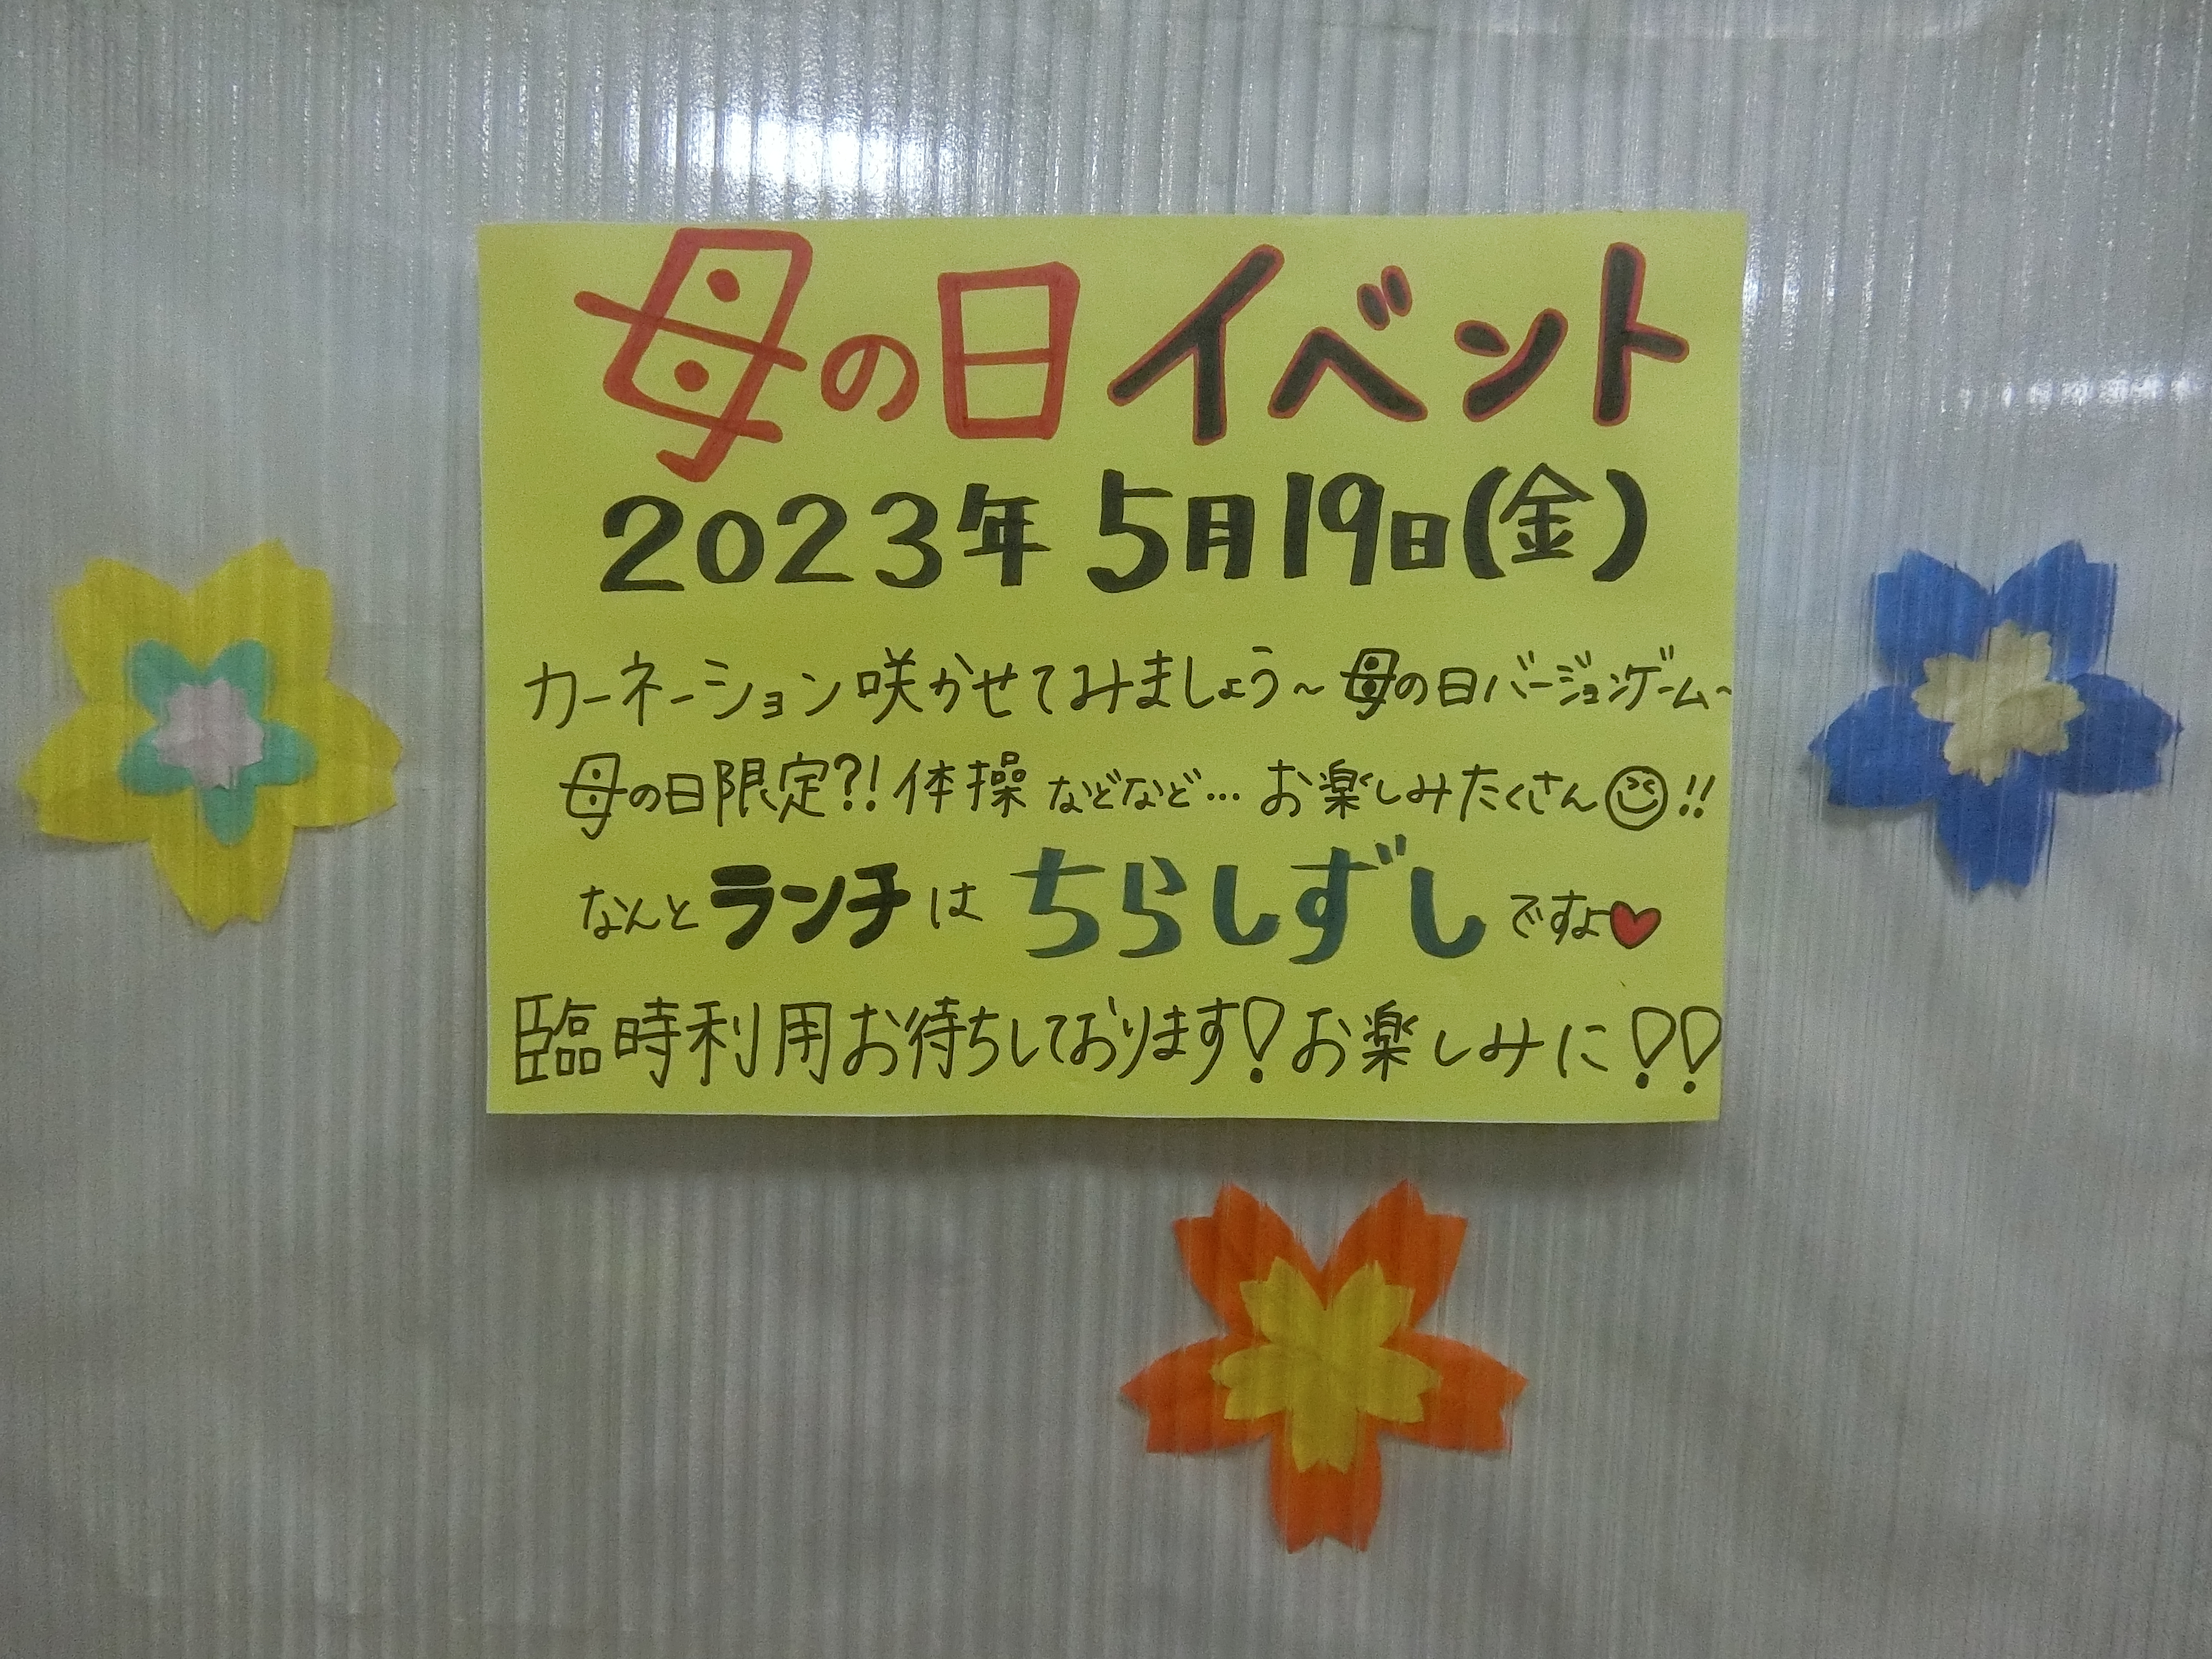 母の日イベント
2023年 5月19日(金)
カーネーション咲かせてみましょう~母の日バージョンゲーム~
母の日限定?!体操などなど…お楽しみたくさん!!
なんとランチはちらしずしですよ♥
臨時利用お待ちしております!お楽しみに!!